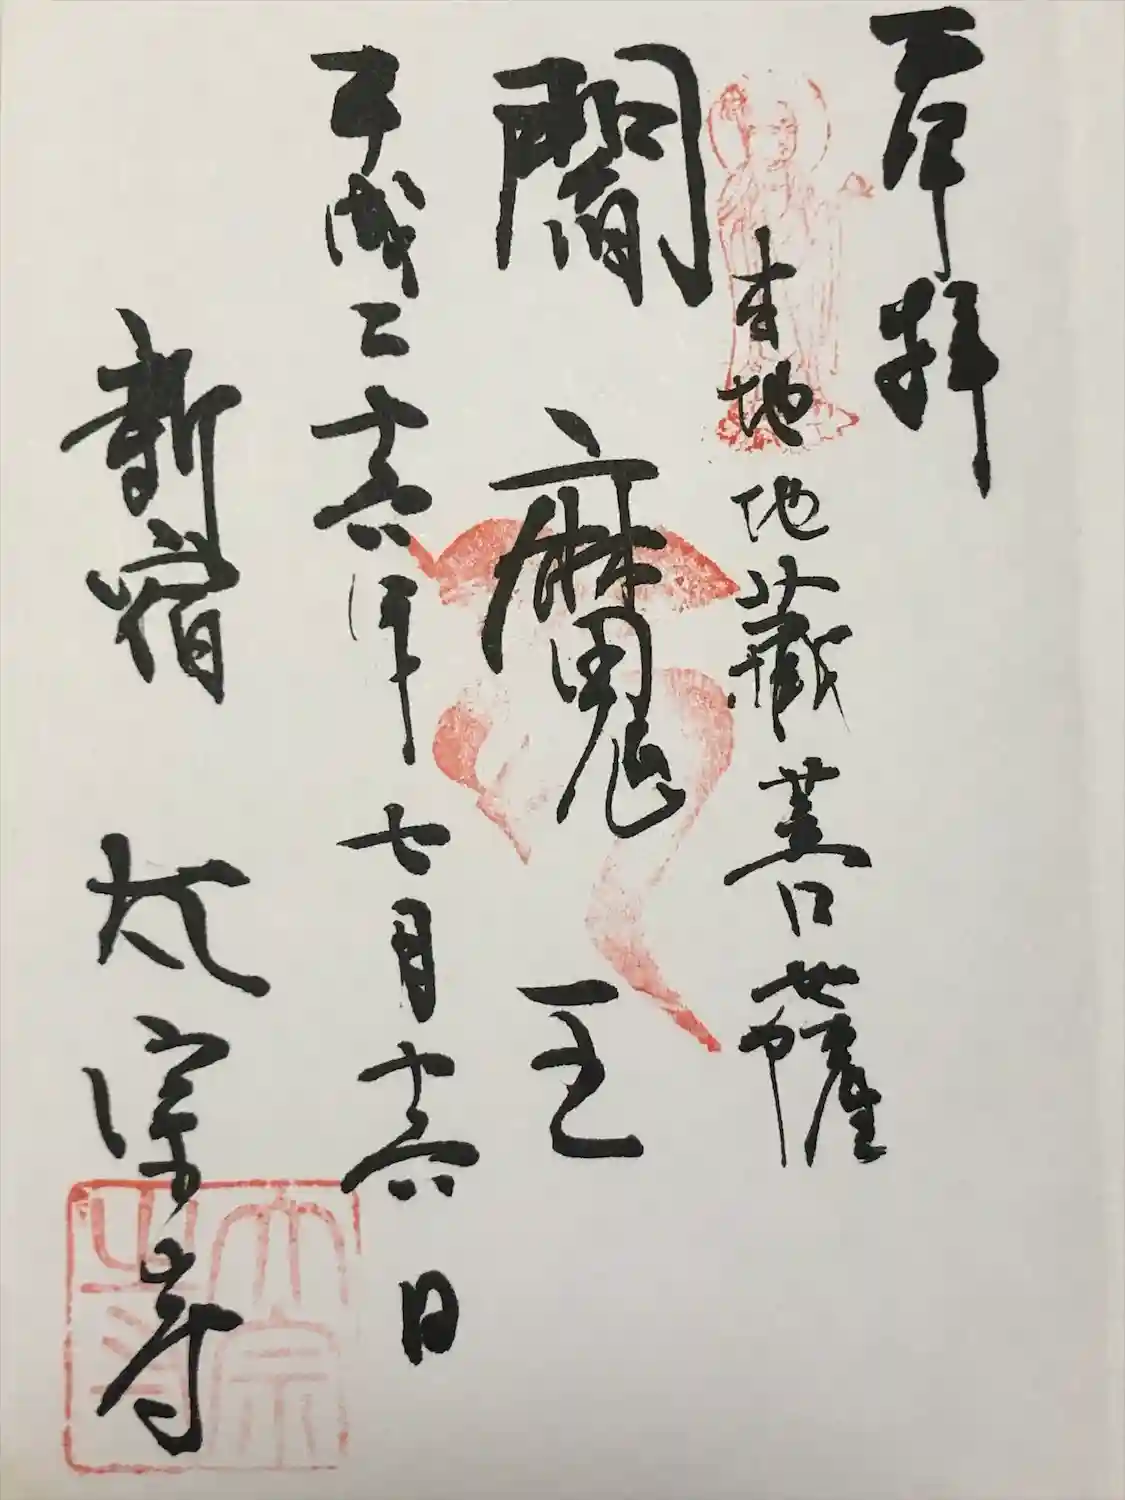 奉拝
本地地蔵菩薩
閻魔王
平成二十六年七月十六日
新宿 太宗寺
太宗
之寺